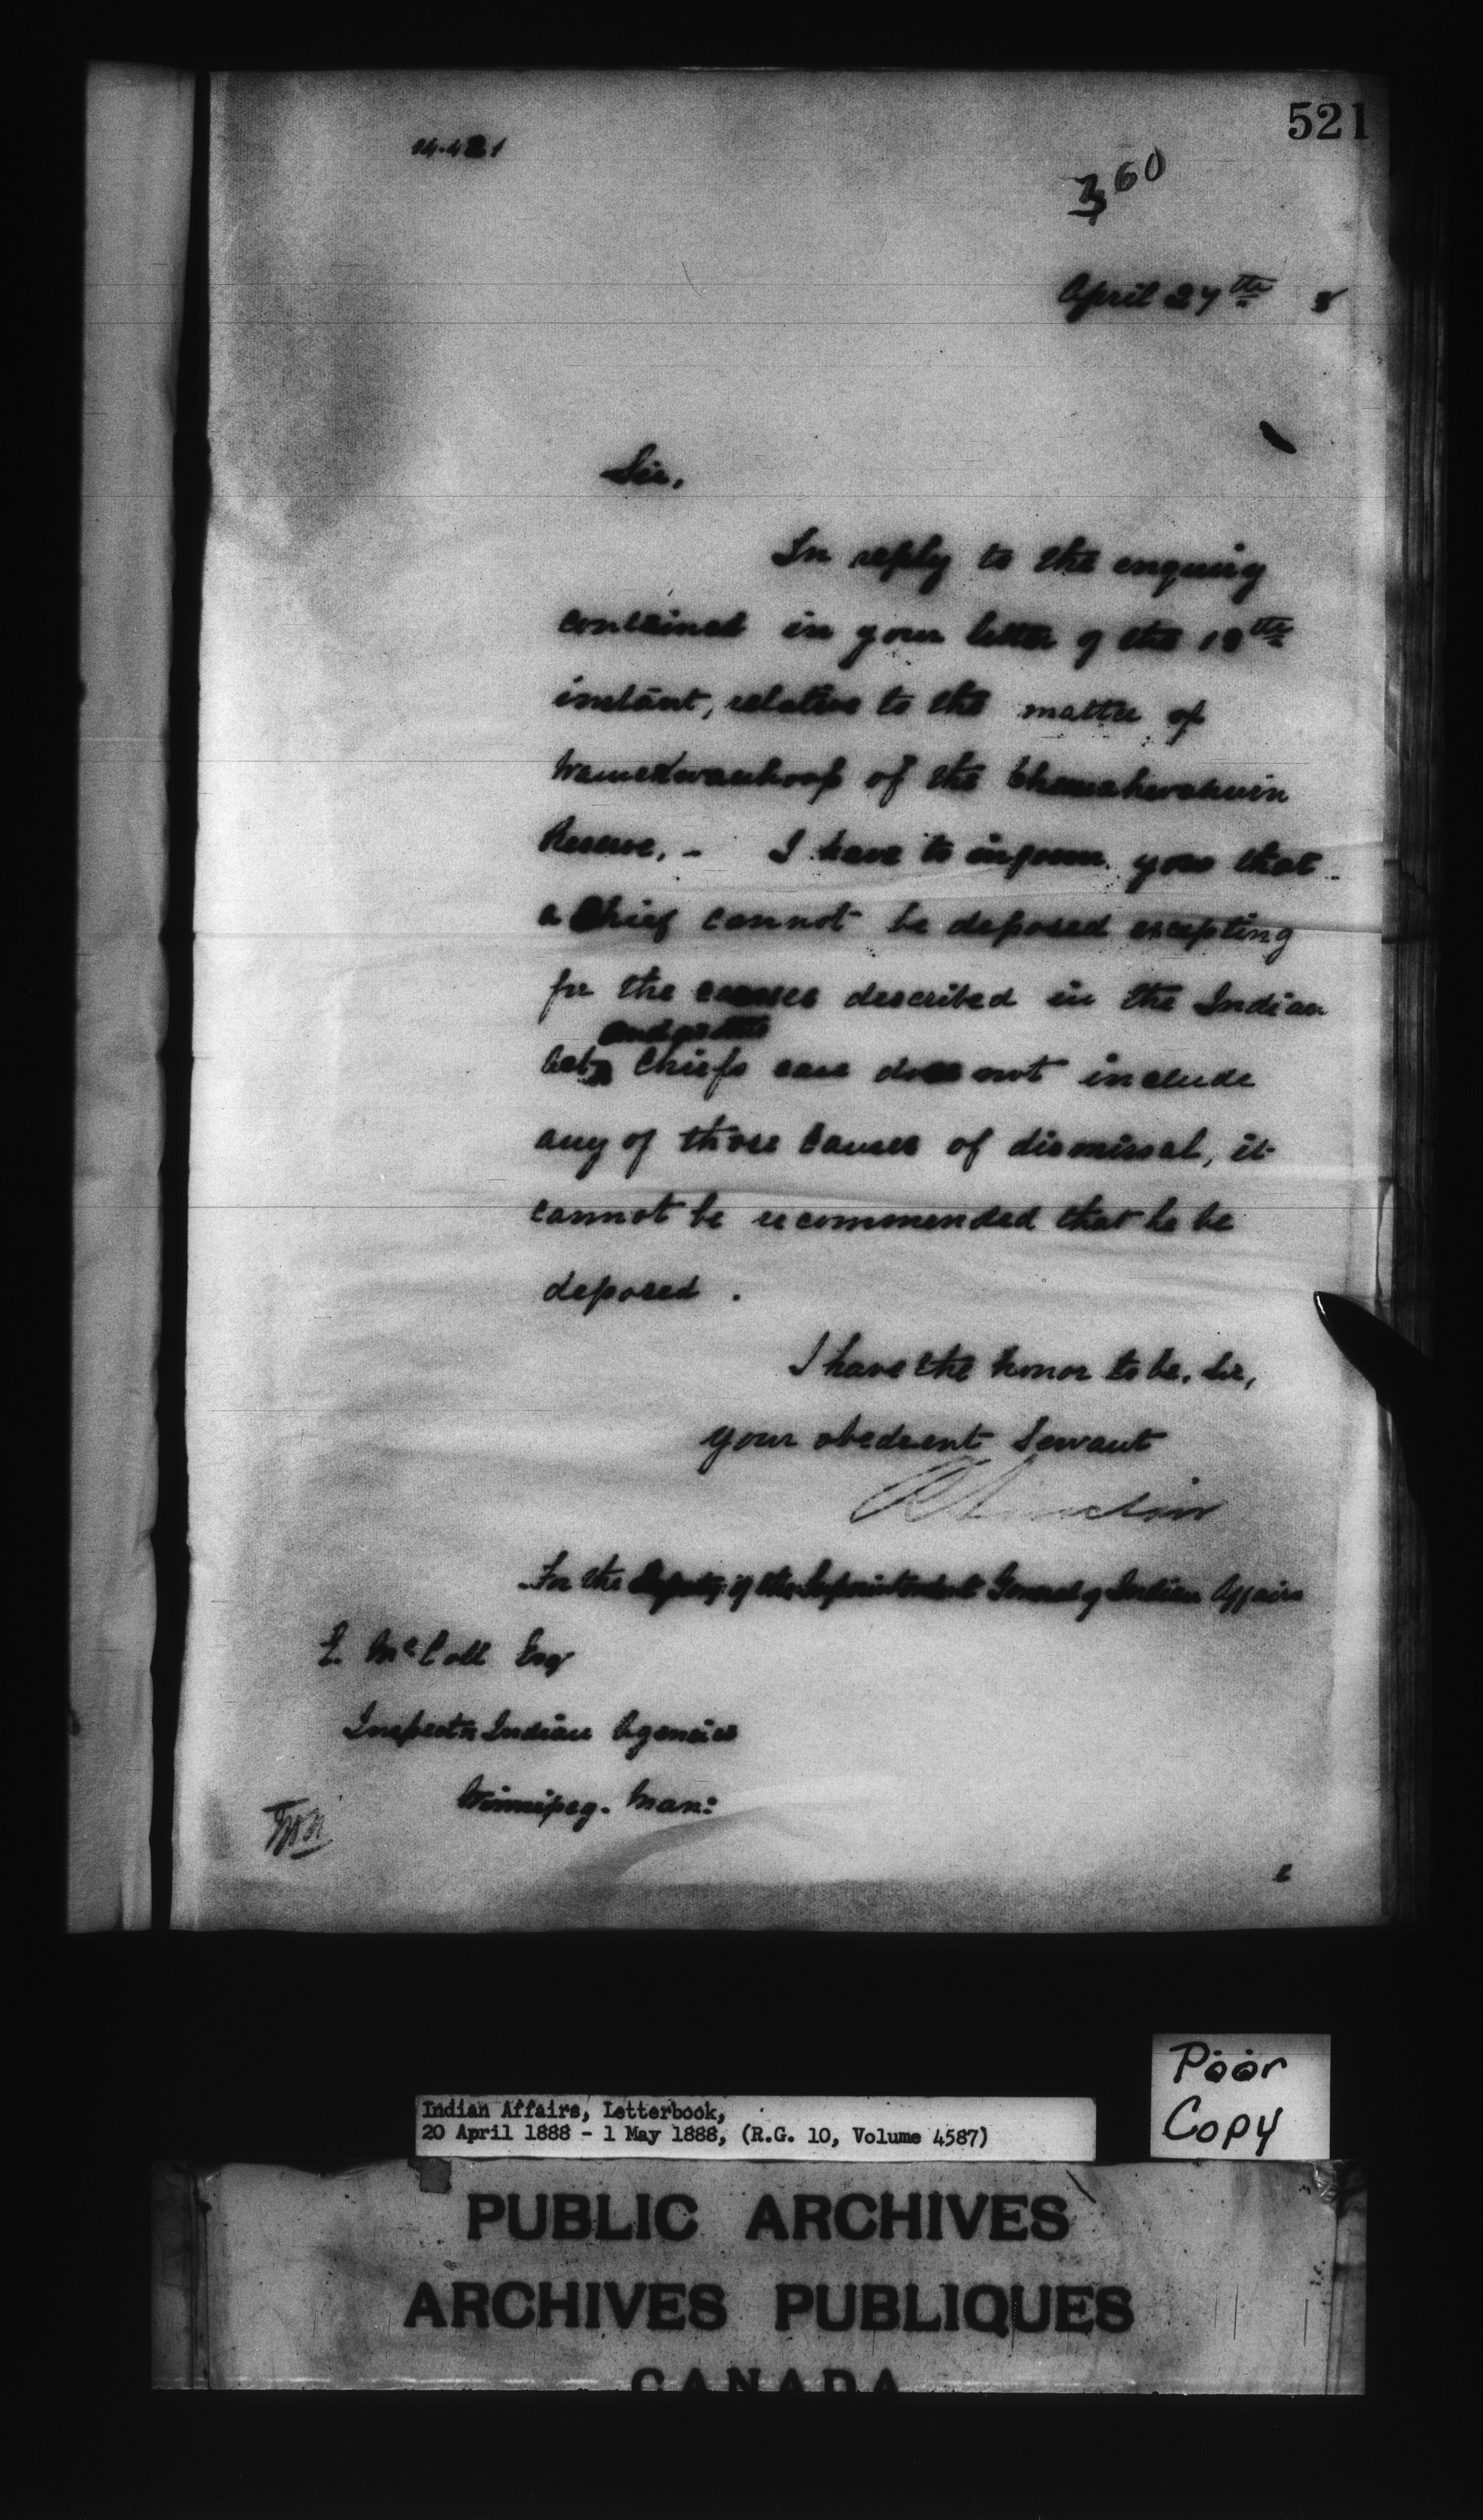 521
360
April 27th 8
Sir,
In reply to the enquiry
contained in your letter of the 18th
instant, relative to the matter of
of the
Reserve, - I have to inform you that
a Chief cannot be deposed excepting
for the causes described in the Indian
Act, Chiefs case does not include
any of those causes of dismissal, it
cannot be recommended that he be
deposed.
I have the honor to be, Sir,
your obedient Servant
R Sinclair
For the Deputy of the Superintendent General of Indian Affairs
E. McColl Esq
Inspectr Indian Agencies
Winnipeg. Man:
Poor
Copy
Indian Affairs, Letterbook,
20 April 1888 - 1 May 1888, (R.G. 10, Volume 4587)
PUBLIC ARCHIVES
ARCHIVES PUBLIQUES
CANADA